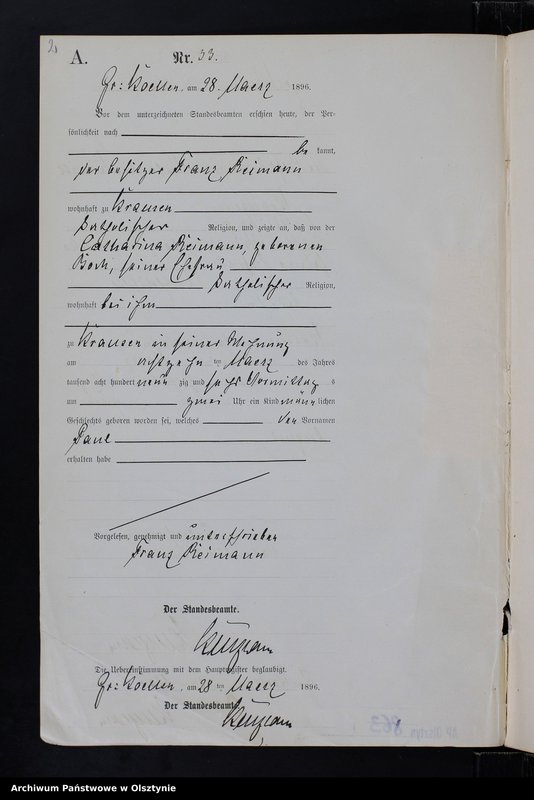 A.
Nr. 33.
Gr: Koellen, am 28. Maerz 1896.
Vor dem unterzeichneten Standesbeamten erschien heute, der Per-
sönlichkeit nach
be kannt,
der Besitzer Franz Reimann
wohnhaft zu Krausen
katholischer Religion, und zeigte an, daß von der
Catharina Reimann, geborenen
seiner Ehefrau
katholischer Religion,
wohnhaft bei ihm
zu Krausen in seiner Wohnung
am achtzehn ten Maerz des Jahres
tausend acht hundert neun zig und sechs Vormittag s
um zwei Uhr ein Kind männ lichen
Geschlechts geboren worden sei, welches den Vornamen
Paul
erhalten habe
Vorgelesen, genehmigt und unterschrieben
Franz Reimann
Der Standesbeamte.
Die Uebereinstimmung mit dem Hauptregister beglaubigt.
Gr: Koellen, am 28 ten Maerz 1896.
Der Standesbeamte.
Archiwum Państwowe w Olsztynie